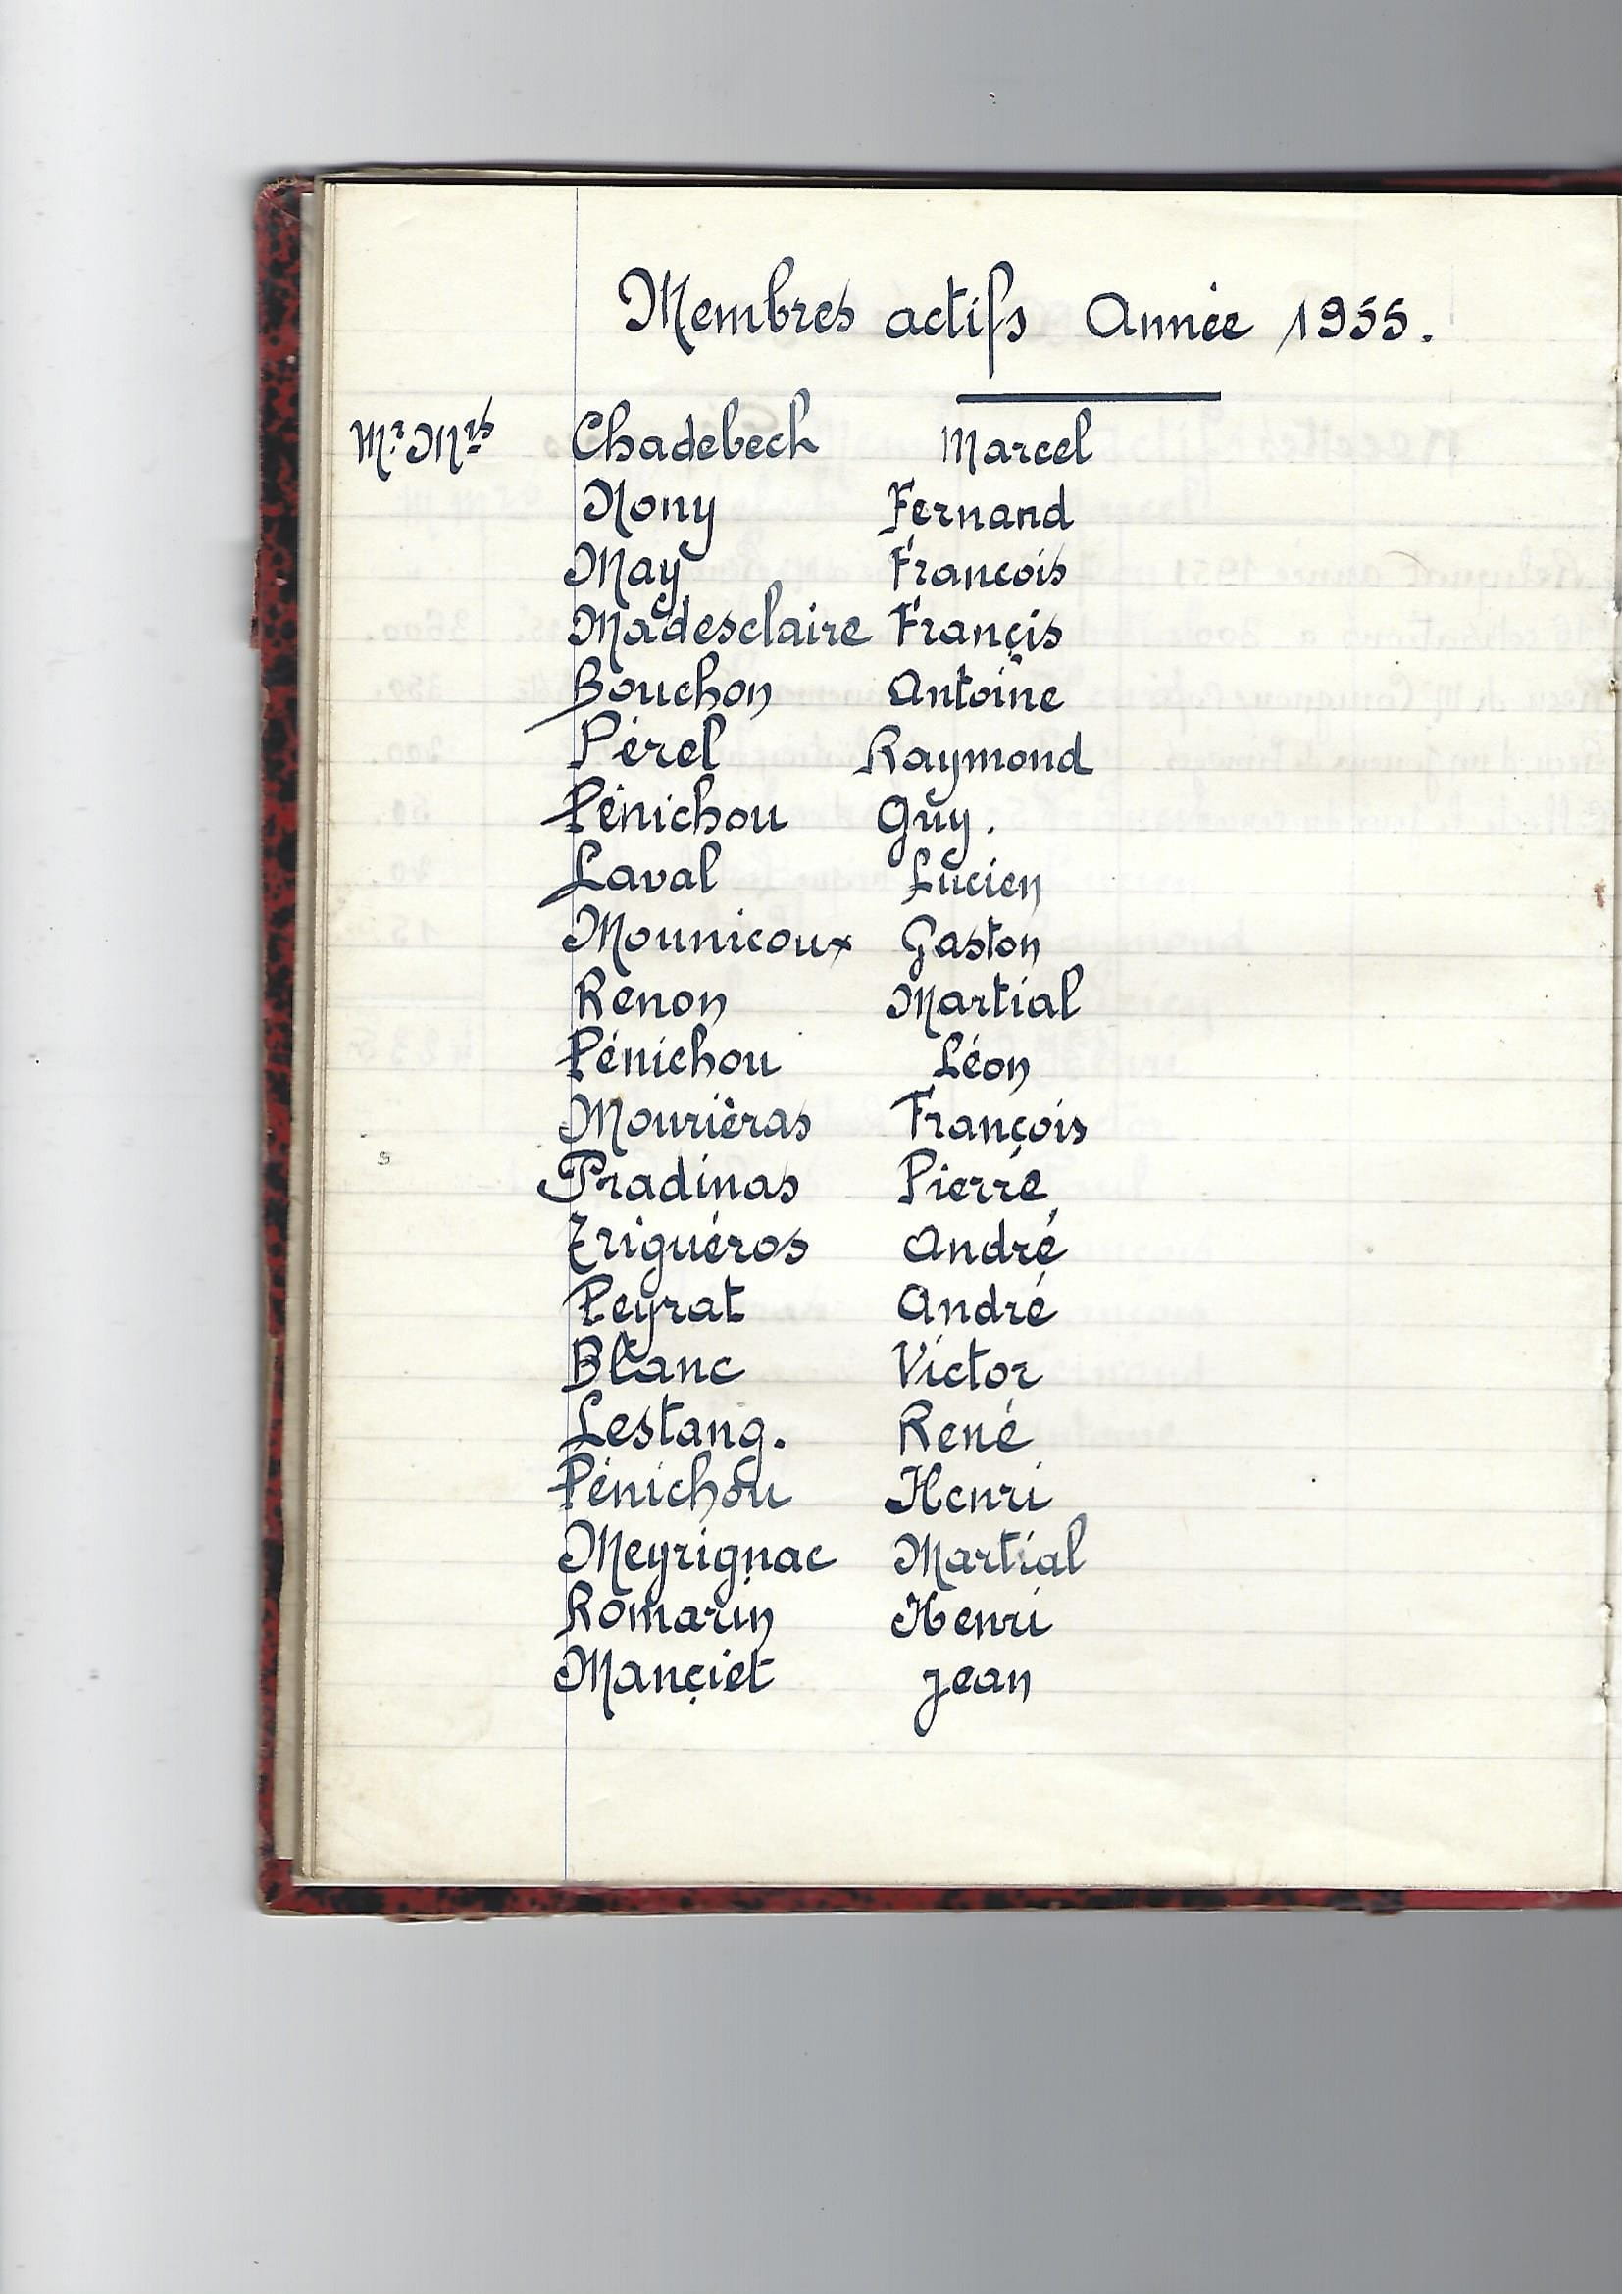 Membres actifs Année 1955.
Mr. Mrs Chadebech Marcel
Nony Fernand
May Francois
Madesclaire Françis
Bouchon Antoine
Pérel Raymond
Pénichou Guy.
Laval Lucien
Mounicoux Gaston
Renon Martial
Pénichou Léon
Mourièras François
Pradinas Pierre
Triguéros André
Peyrat André
Blanc Victor
Lestang. René
Pénichou Henri
Meyrignac Martial
Romarin Henri
Mançiet Jean